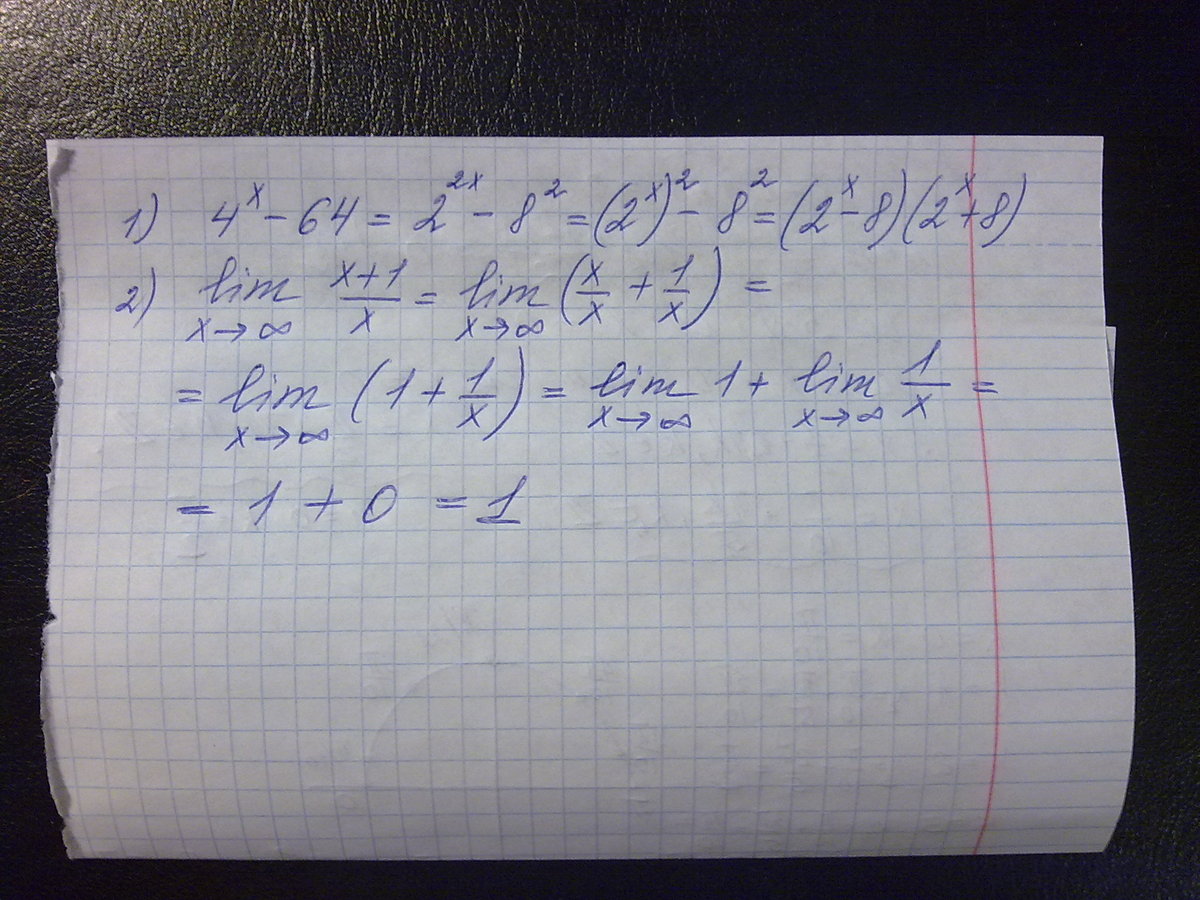 1) 4^x - 64 = 2^{2x} - 8^2 = (2^x)^2 - 8^2 = (2^x - 8)(2^x + 8)
2) lim_{x→∞} \frac{x+1}{x} = lim_{x→∞} (\frac{x}{x} + \frac{1}{x}) =
= lim_{x→∞} (1 + \frac{1}{x}) = lim_{x→∞} 1 + lim_{x→∞} \frac{1}{x} =
= 1 + 0 = 1